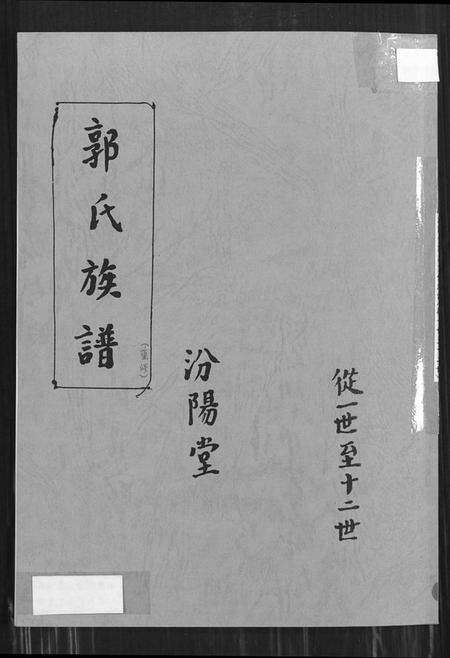 從一世至十二世
汾陽堂
郭氏族譜